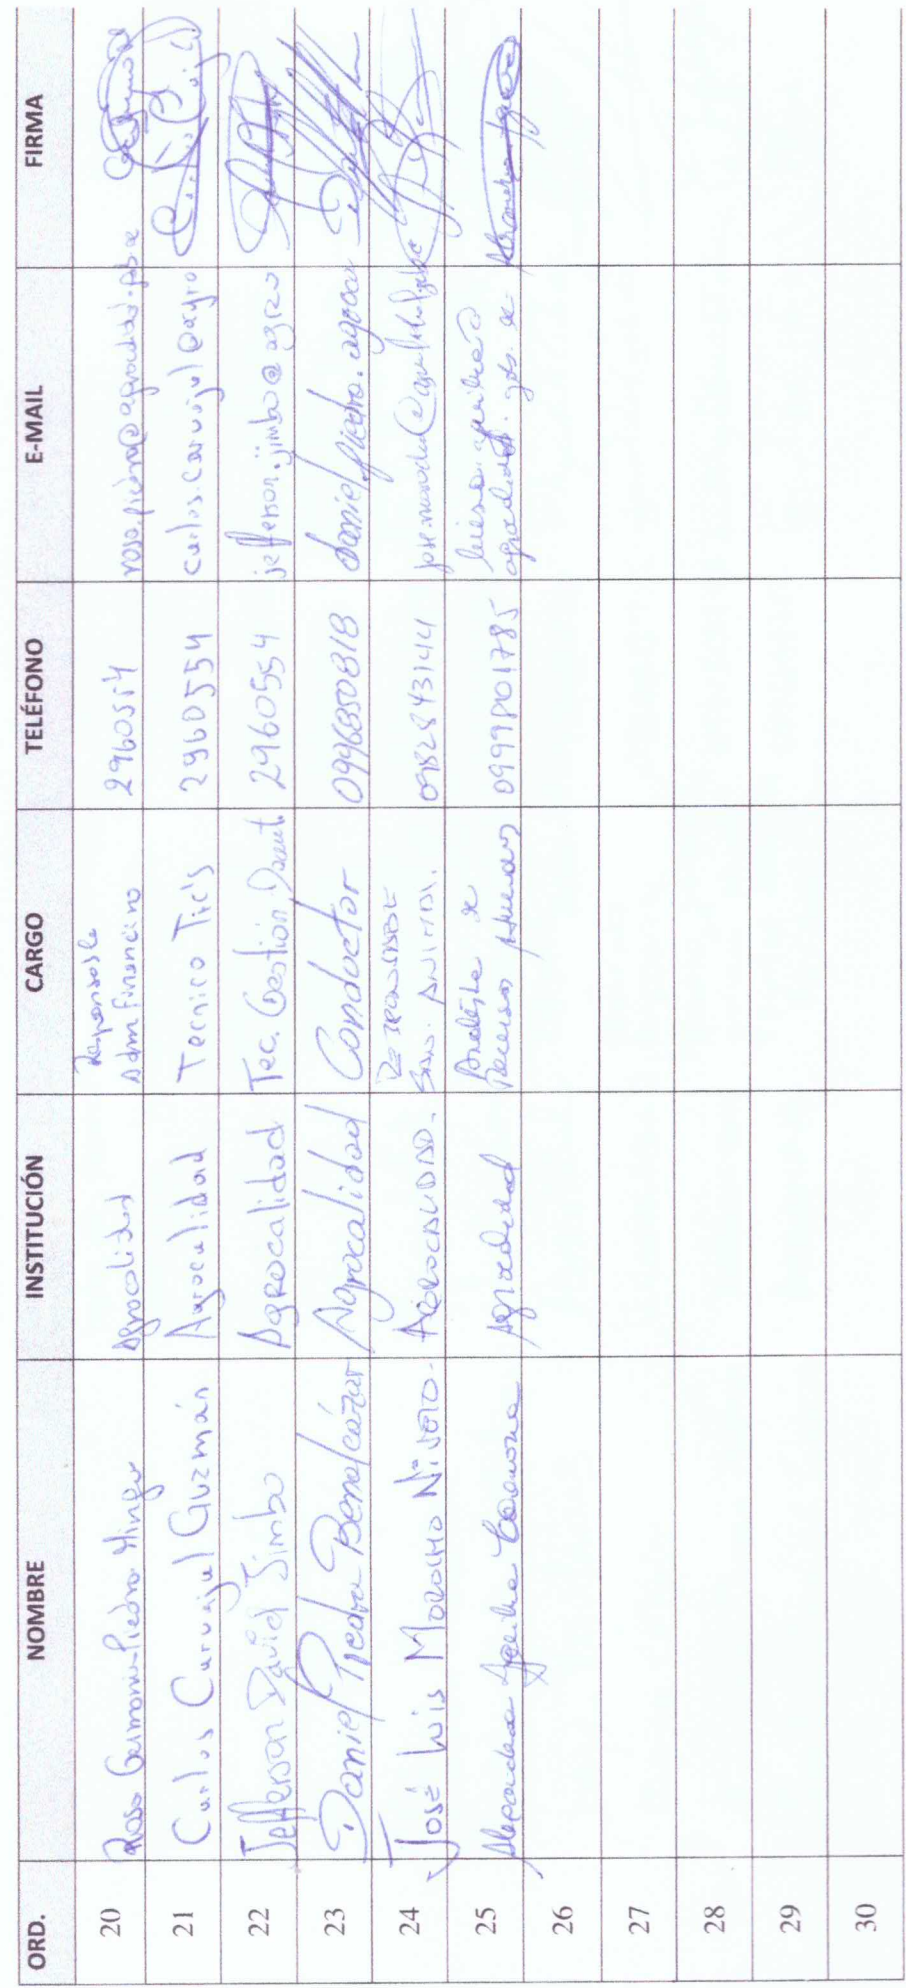 ORD. NOMBRE INSTITUCIÓN CARGO TELÉFONO E-MAIL FIRMA
20 Rosa Germania Piedra Agrocalidad Responsable Adm Financiero 2960554 rosa.piedra@agrocalidad.gob.ec
21 Carlos Carvajal Guzmán Agrocalidad Tecnico Tic's 2960554 carlos.carvajal@agro
22 Jefferson David Jimbo Agrocalidad Tec. Gestión Docut 2960554 jefferson.jimbo@agro
23 Daniel Piedra Benalcázar Agrocalidad Conductor 0996850818 daniel.piedra.agrocal
24 José Luis Morocho Agrocalidad. Responsable San. Animal. 0982843144
25 Agrocalidad Analista de Recursos Humanos
26
27
28
29
30